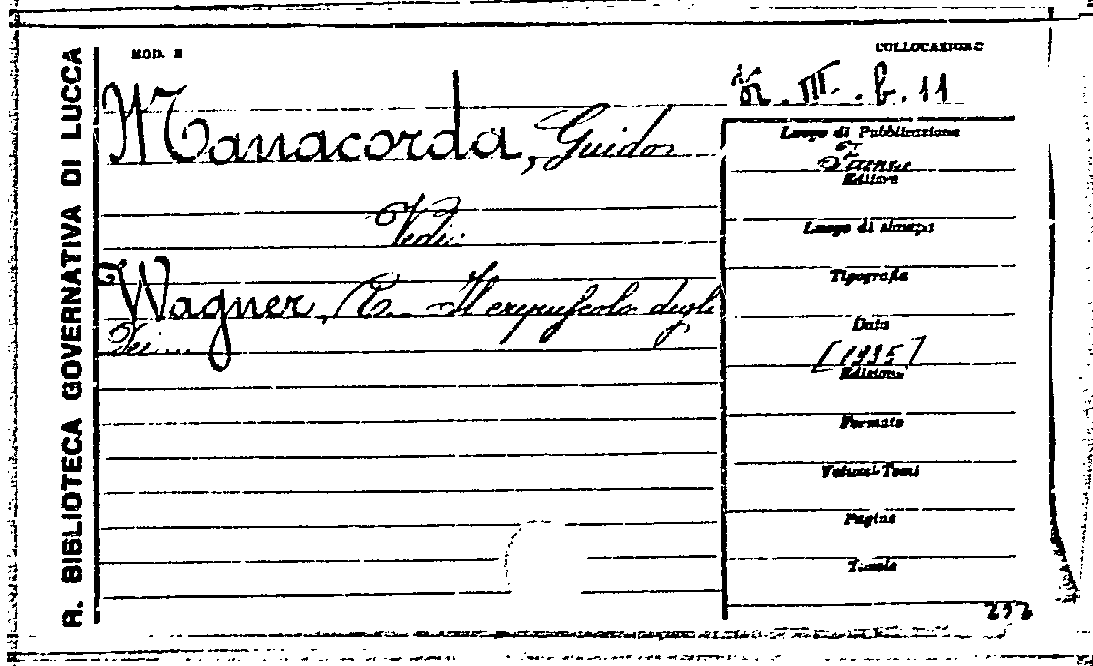 R. BIBLIOTECA GOVERNATIVA DI LUCCA
MOD. E
COLLOCAZIONE
III. b. 11
Manacorda, Guido
Vedi:
Wagner, Il crepuscolo degli
Dei...
Luogo di Pubblicazione
Firenze
Editore
Luogo di stampa
Tipografia
Data
[1935]
Edizione
Formato
Volumi-Tomi
Pagine
Tavole